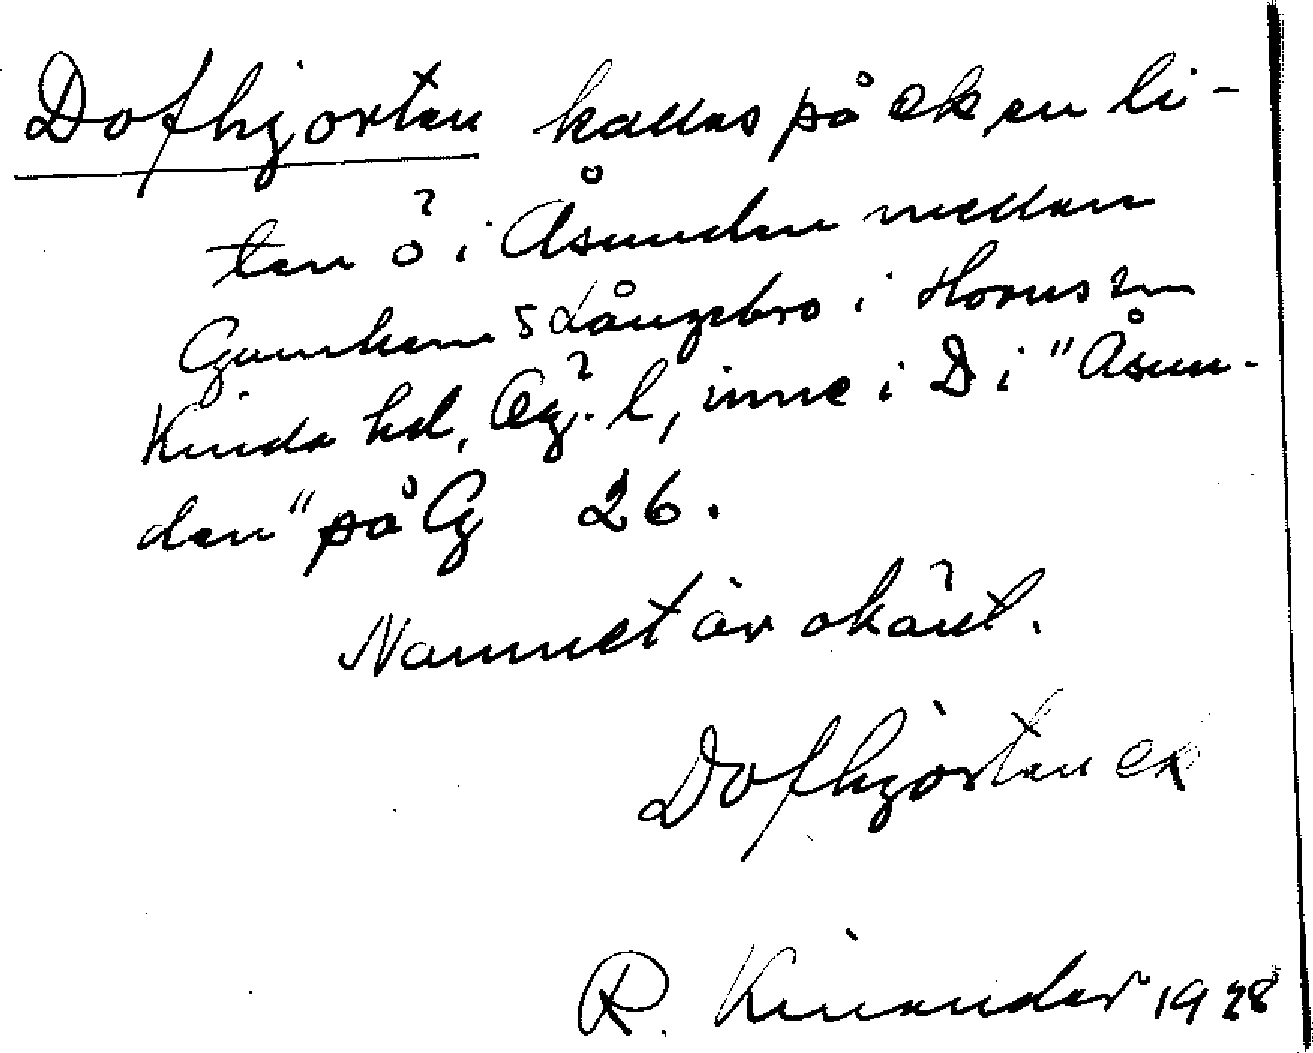 Dofhjorten kallas på ek en li-
ten ö i Åsunden mellan
Långebro i Horns sn
Kinda hd, Ög. l, inne i D i "Åsun-
den" på G 26.
Namnet är okänt.
Dofhjorten ek
R. Kinander 1928